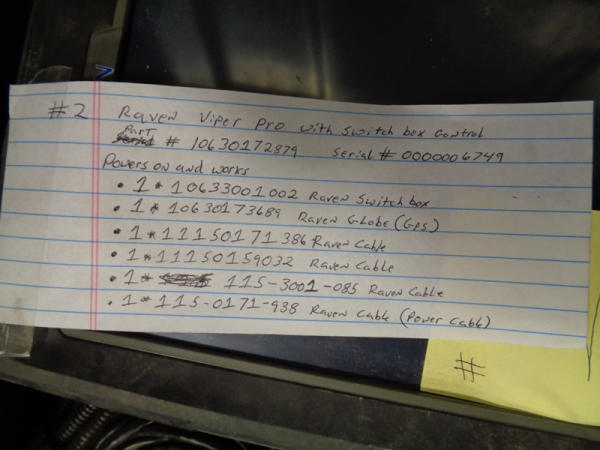 #2 Raven Viper Pro with Switch box Control
Part # 10630172879 Serial # 0000006749
Powers on and works
• 1 * 10633001002 Raven Switch box
• 1 * 10630173689 Raven Globe (GPS)
• 1 * 11150171386 Raven Cable
• 1 * 11150159032 Raven Cable
• 1 * 115-3001-085 Raven Cable
• 1 * 115-0171-938 Raven Cable (Power Cable)
#